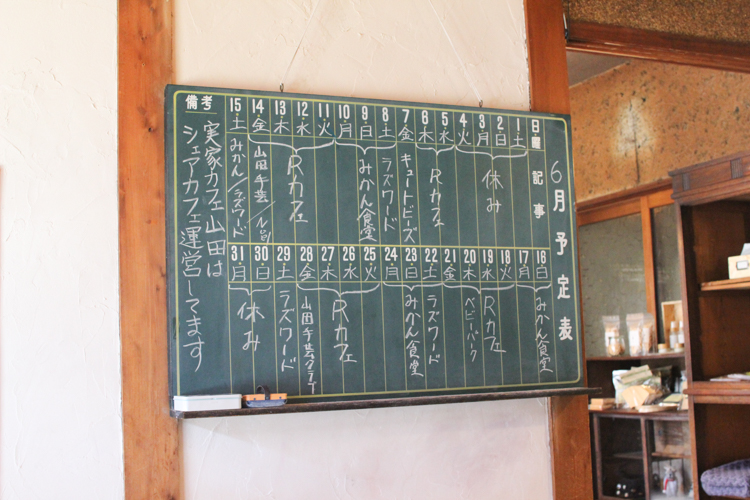 6月予定表
日曜 記事
1 土
2 日
3 月
4 火
5 水
6 木
7 金
8 土
9 日
10 月
11 火
12 水
13 木
14 金
15 土
休み
Rカフェ
キュートビーズ
ラズワード
みかん食堂
Rカフェ
山田手芸/
みかん/ラズワード
16 日
17 月
18 火
19 水
20 木
21 金
22 土
23 日
24 月
25 火
26 水
27 木
28 金
29 土
30 日
31 月
みかん食堂
Rカフェ
ベビーパーク
ラズワード
みかん食堂
Rカフェ
山田手芸クラブ
ラズワード
休み
備考
実家カフェ山田は
シェアカフェ運営してます